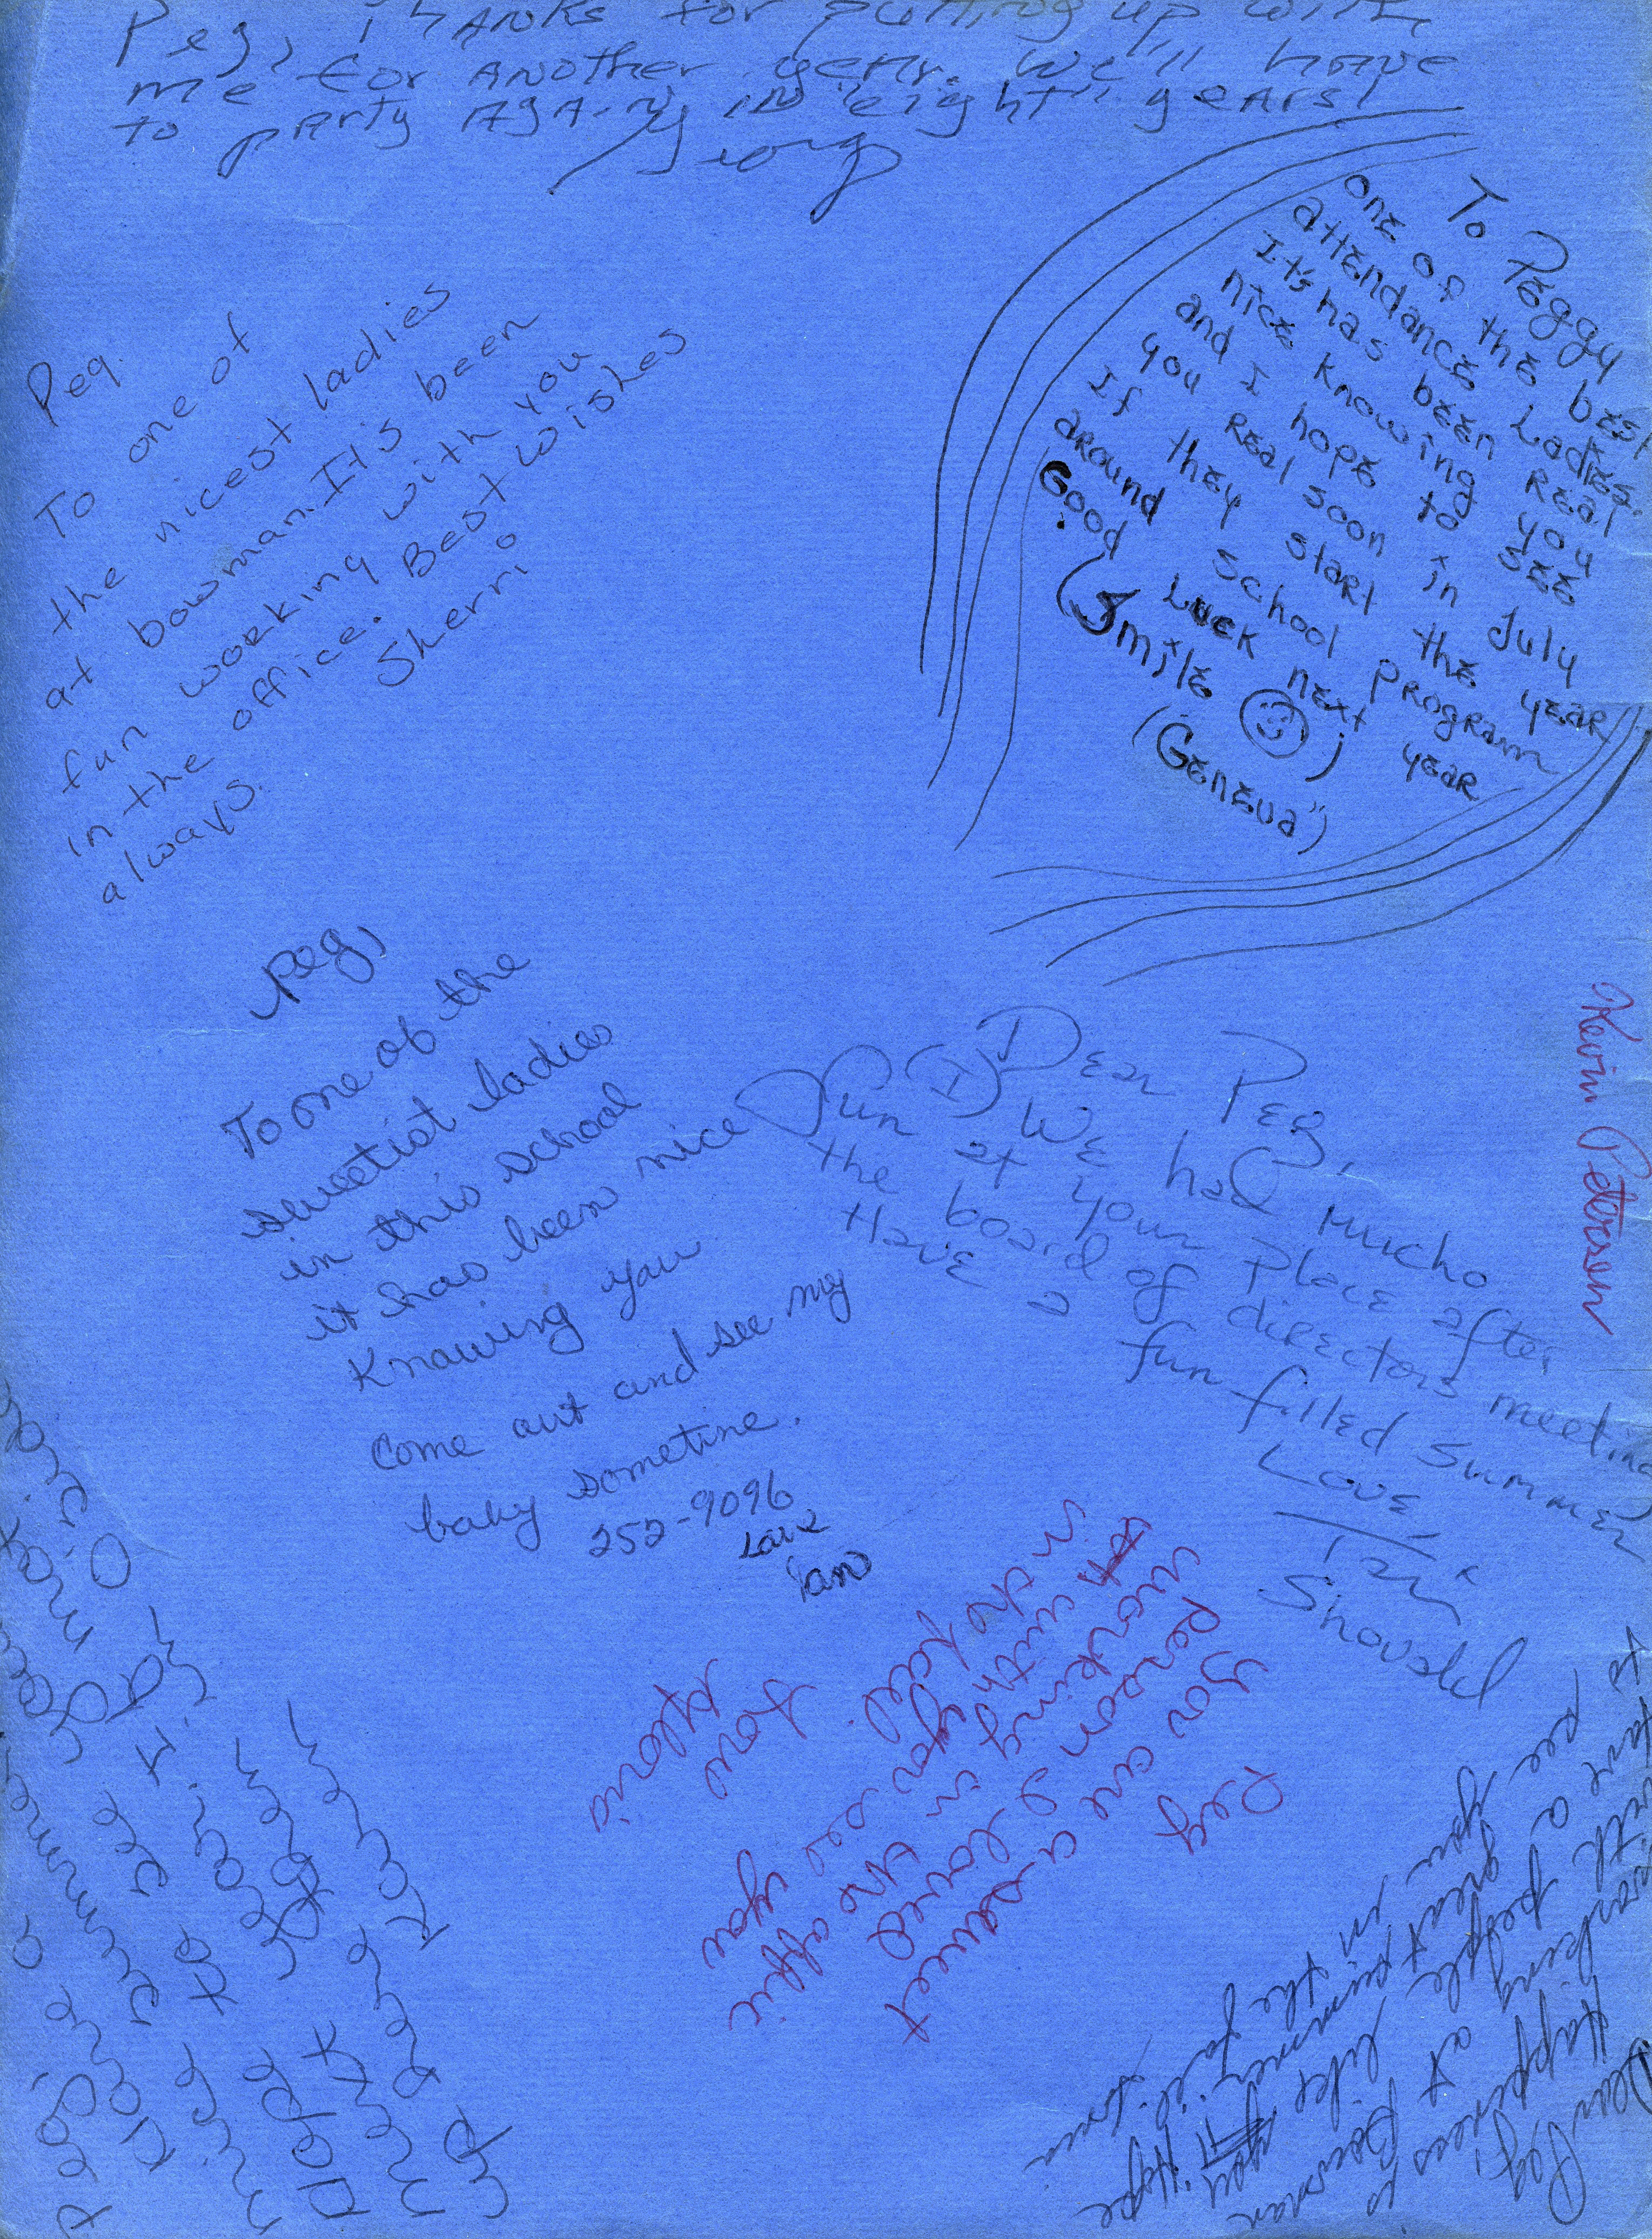 Peg, Thanks for putting up with
me for another year. We'll have
to party again in "eight" years!
Peg.
To one of
the nicest ladies
at bowman. It's been
fun working with you
in the office. Best wishes
always.
Sherri
To Peggy
one of the best
attendance Ladies.
It's has been real
nice knowing you
and I hope to see
you real soon in July
If they start the year
around school program
Good Luck next year
(Smile)
(Geneva")
Peg,
To one of the
sweetist ladies
in this school
it has been nice
Knowing you
come out and see my
baby sometime.
252-9096
Dear Peg,
(I) We had mucho
fun at your place after
the board of directors meeting
Have a fun filled summer
Love,
Snouskil
Kevin Petersen
Peg
You are a sweet
person I loved
working in the office
with you see you
in the fall.
Love
Gloria
Peg,
Have a
nice summer
next year.
Karen
Dear Peg,
Happiness is
working at Bowman
with people like you
Hope
see you in the